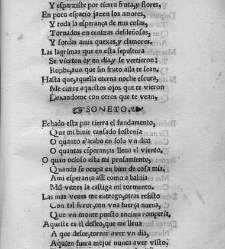 Y esparziste por tierra fruta, y flores,
En poco espacio jazen los amores,
Y toda la esperança de mis cosas,
Tornados en cenizas desdeñosas,
Y sordas a mis quexas, y clamores.
Las lagrimas que en esta sepultura
Se vierten oy en dia, y se vertieron
Recibe, aun que sin fruto alla te sean,
Hasta que aquella eterna noche escura,
Me cierre aquestos ojos que te vieron
Dexandome con otros que te vean.
SONETO.
Echado esta por tierra el fundamento,
Que mi biuir cansado sostenia
O quanto s'acabo en solo vn dia,
O quantas esperanças lleua el viento.
O quan ocioso esta mi pensamiento,
Quando se ocupa en bien de cosa mia,
A mi esperança assi como a baldia
Mil vezes la castiga mi tormento.
Las mas vezes me entrego, otras resisto
Con tal furor, con vna fuerça nueua,
Que vn monte puesto encima romperia,
Aqueste es el desseo, que me lleua
A que dessee, tornar a ver vn dia,
A quien fuera mejor nunca auer visto,